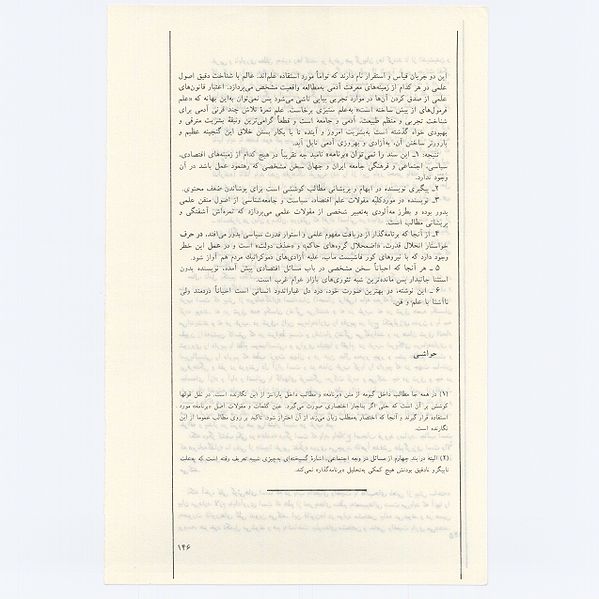 این دو جریان قیاس و استقرار نام دارند که توأماً مورد استفاده علم‌اند. عالم با شناخت دقیق اصول
علمی در هر کدام از زمینه‌های معرفت آدمی به‌مطالعه واقعیت مشخص می‌پردازد. اعتبار قانون‌های
علمی از صدق کردن آن‌ها در موارد تجربی بیابی ناشی می‌شود پس نمی‌توان به‌این بهانه که «علم
فرمول‌های از پیش ساخته است» به‌علم ستیزی برخاست. علم ثمرهٔ تلاش چند قرنی آدمی برای
شناخت تجربی و منظم طبیعت، آدمی و جامعه است و قطعاً گرامی‌ترین وثیقهٔ بشریت مترقی و
بهبودی خواه گذشته است به‌بشریت امروز و آینده تا با بکار بستن خلاق این گنجینه عظیم و
بارورتر ساختن آن، به‌آزادی و بهروزی آدمی نایل آید.
نتیجه: ۱ـ این سند را نمی‌توان «برنامه» نامید چه تقریباً در هیچ کدام از زمینه‌های اقتصادی،
سیاسی، اجتماعی و فرهنگی جامعه ایران و جهان سخن مشخصی که رهنمود عمل باشد در آن
وجود ندارد.
۲ـ پیگیری نویسنده در ابهام و پریشانی مطالب کوششی است برای پوشاندن ضعف محتوی.
۳ـ نویسنده در مورد کلیه مقولات علم اقتصاد، سیاست و جامعه‌شناسی از اصول متقن علمی
بدور بوده و بطرز مه‌آلودی به‌تعبیر شخصی از مقولات علمی می‌پردازد که ثمره‌اش آشفتگی و
پریشانی مطالب است.
۴ـ از آنجا که برنامه‌گذار از دریافت مفهوم علمی و استوار قدرت سیاسی بدور می‌افتد، در حرف
خواستار انحلال قدرت، «اضمحلال گروه‌های حاکم» و «حذف دولت» است و در عمل این خطر
وجود دارد که با نیروهای کور فاشیست مآب، علیه آزادی‌های دموکراتیک مردم هم آواز شود.
۵ـ هر آنجا که احیاناً سخن مشخصی در باب مسائل اقتصادی پیش آمده، نویسنده بدون
استثنا جانبدار پس مانده‌ترین شبه تئوری‌های بازار عوام غرب است.
۶ـ این نوشته، در بهترین صورت خود، درد دل غبارآندود انسانی است احیاناً دردمند ولی
ناآشنا با علم و فن.
حواشی
(۱) در همه جا مطالب داخل گیومه از متن «برنامه» و مطالب داخل پارانتز از این نگارنده است. در نقل قولها
کوشش بر آن است که حتی اگر بناچار اختصاری صورت می‌گیرد، عین کلمات و مقولات اصل «برنامه» مورد
استفاده قرار گیرند و آنجا که اختصار به‌مطلب زیان می‌زند از آن احتراز شود. تأکید بر روی مطالب عموماً از این
نگارنده است.
(۲) البته در بند چهارم از مسائل در وجه اجتماعی، اشارهٔ گسیخته‌ای به‌چیزی شبیه تعریف رفته است که به‌علت
نادقیق بودنش هیچ کمکی به‌تحلیل «برنامه‌گذار» نمی‌کند.
۱۴۶